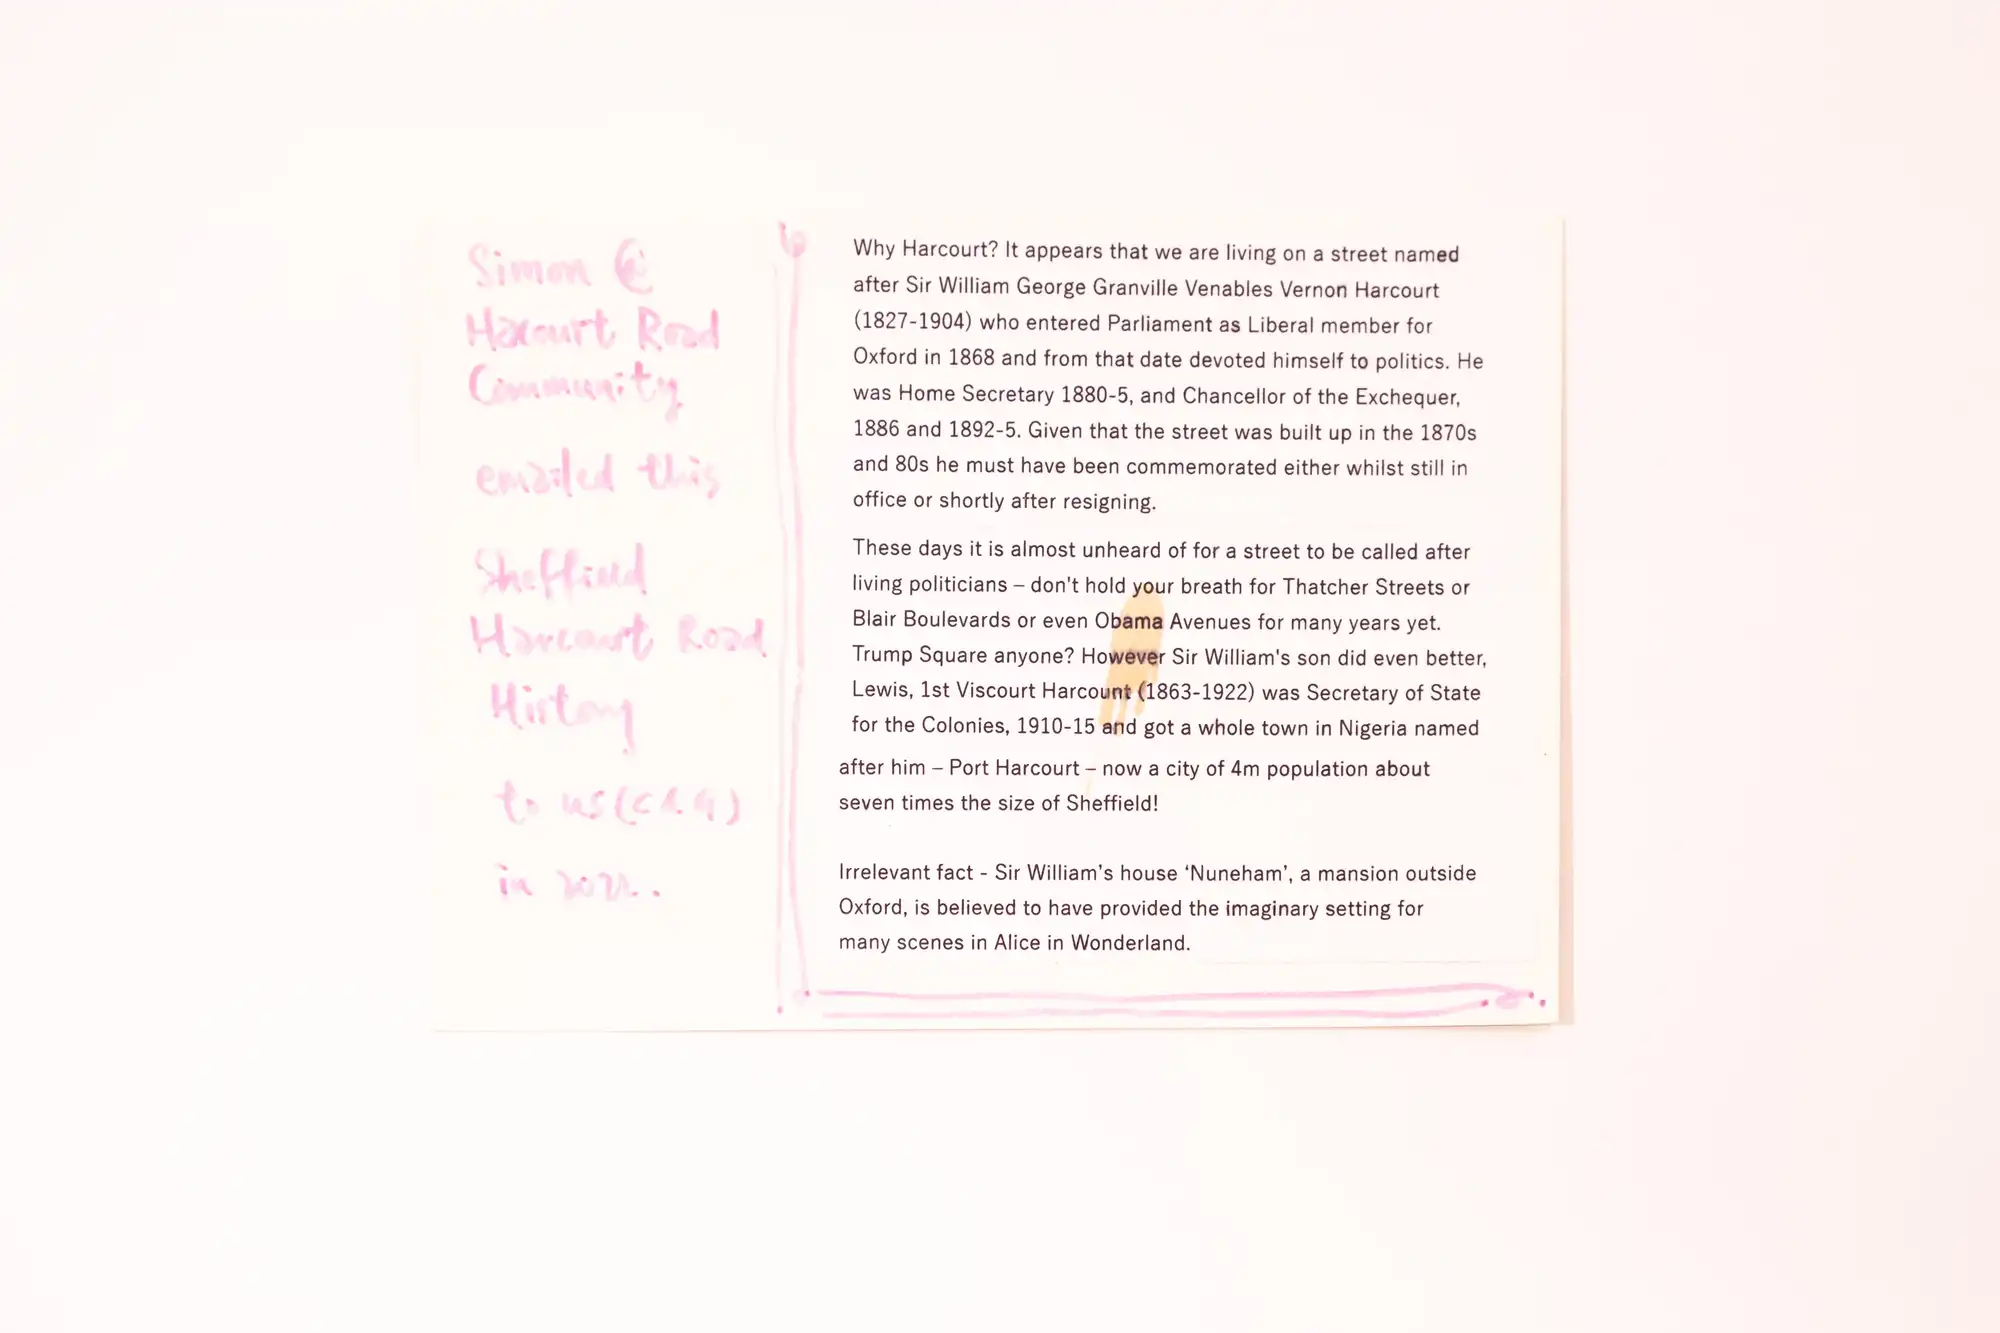 Simon @
Harcourt Road
Community
emailed this
Sheffield
Harcourt Road
History
to us
in 2022.
Why Harcourt? It appears that we are living on a street named
after Sir William George Granville Venables Vernon Harcourt
(1827-1904) who entered Parliament as Liberal member for
Oxford in 1868 and from that date devoted himself to politics. He
was Home Secretary 1880-5, and Chancellor of the Exchequer,
1886 and 1892-5. Given that the street was built up in the 1870s
and 80s he must have been commemorated either whilst still in
office or shortly after resigning.
These days it is almost unheard of for a street to be called after
living politicians – don't hold your breath for Thatcher Streets or
Blair Boulevards or even Obama Avenues for many years yet.
Trump Square anyone? However Sir William's son did even better,
Lewis, 1st Viscourt Harcount (1863-1922) was Secretary of State
for the Colonies, 1910-15 and got a whole town in Nigeria named
after him – Port Harcourt – now a city of 4m population about
seven times the size of Sheffield!
Irrelevant fact - Sir William's house ‘Nuneham’, a mansion outside
Oxford, is believed to have provided the imaginary setting for
many scenes in Alice in Wonderland.